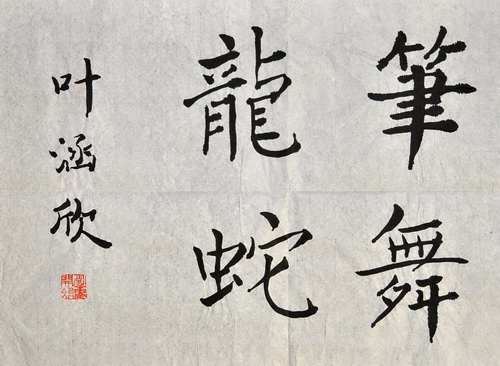 筆舞
龍蛇
叶涵欣